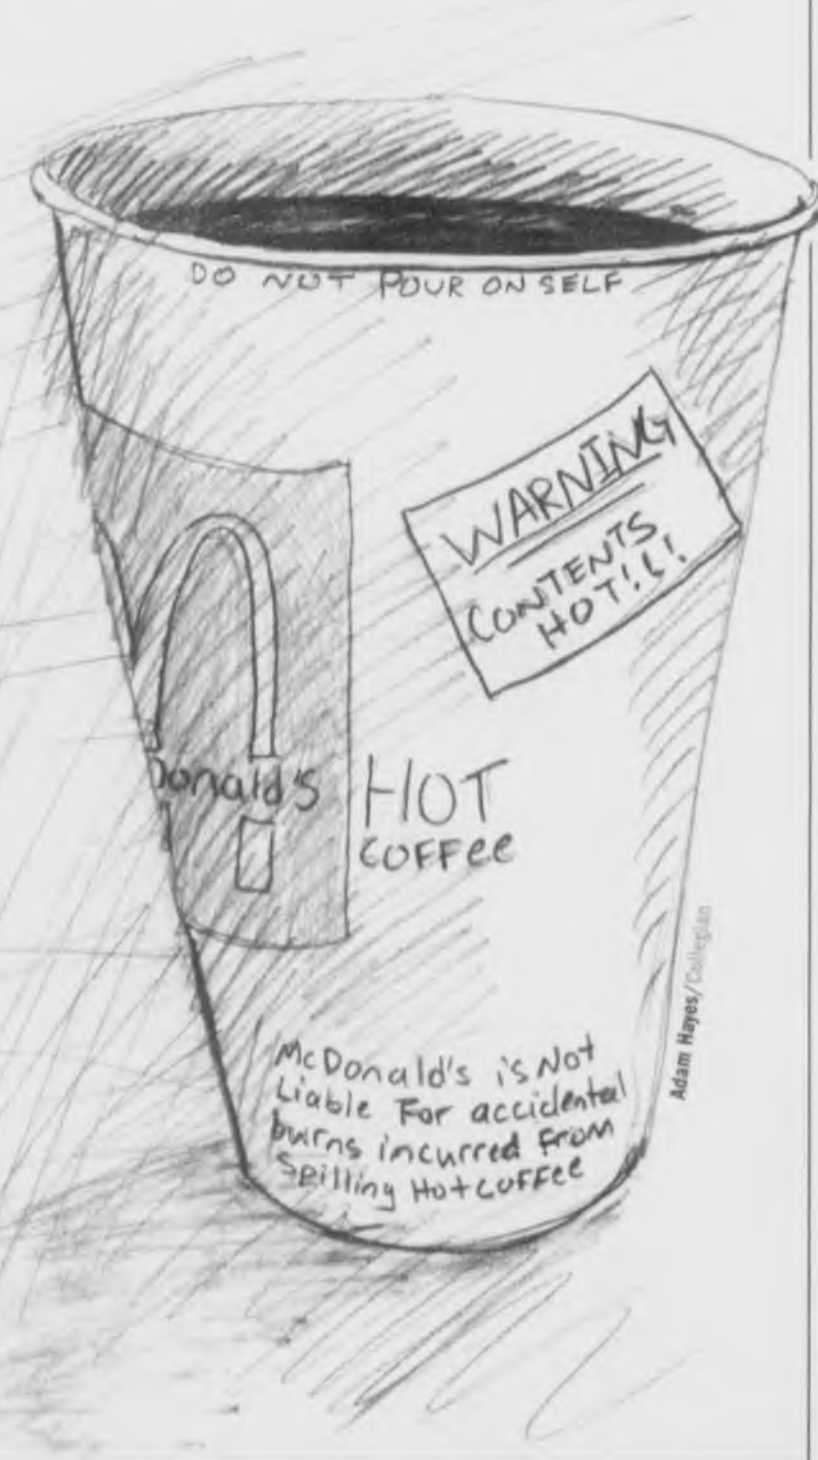 DO NOT POUR ON SELF
WARNING
CONTENTS
HOT!!!
Donald's
HOT
COFFee
McDonald's is Not
Liable For accidental
burns incurred From
Spilling Hot COFFee
Adam Hayes/Collegian